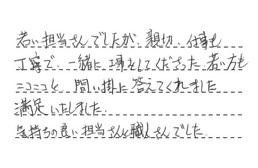 若い担当さんでしたが、親切、仕事も
丁寧で、一緒に来てくださった若い方も
ニコニコと、問い掛に答えてくれました
満足いたしました。
気持ちの良い担当さんと職人さんでした